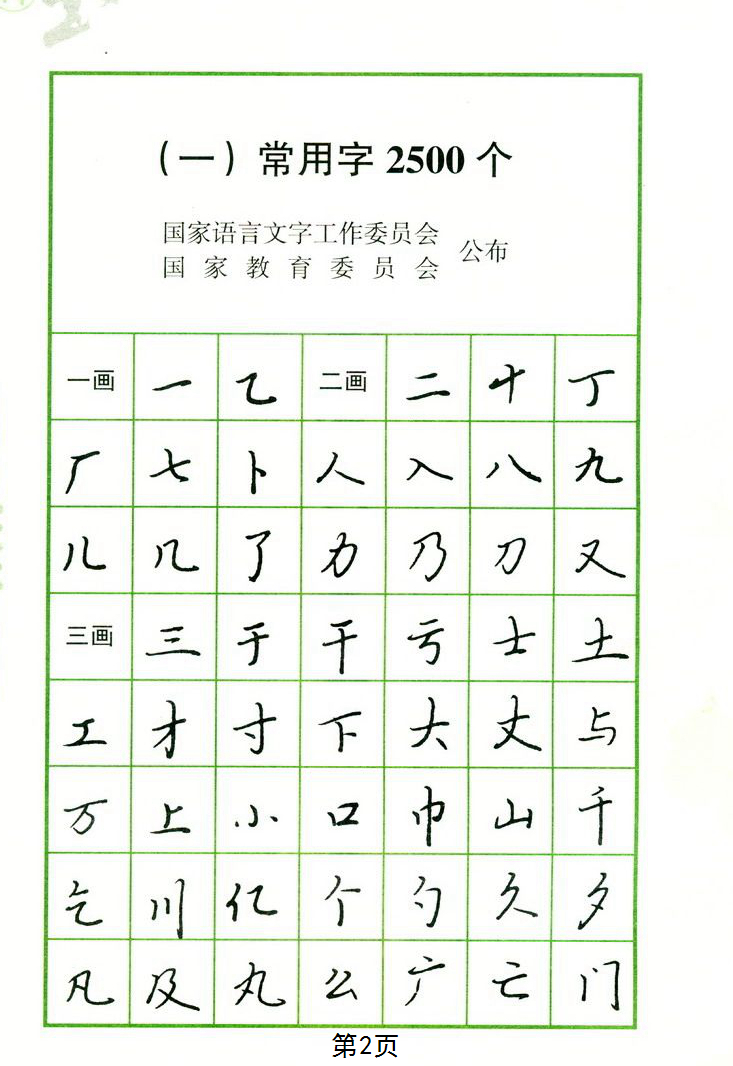 （一）常用字 2500 个
国家语言文字工作委员会
国家教育委员会
公布
一画 一 乙 二画 二 十 丁
厂 七 卜 人 入 八 九
儿 几 了 力 乃 刀 又
三画 三 于 干 亏 士 土
工 才 寸 下 大 丈 与
万 上 小 口 巾 山 千
乞 川 亿 个 勺 久 夕
凡 及 丸 么 广 亡 门
第2页